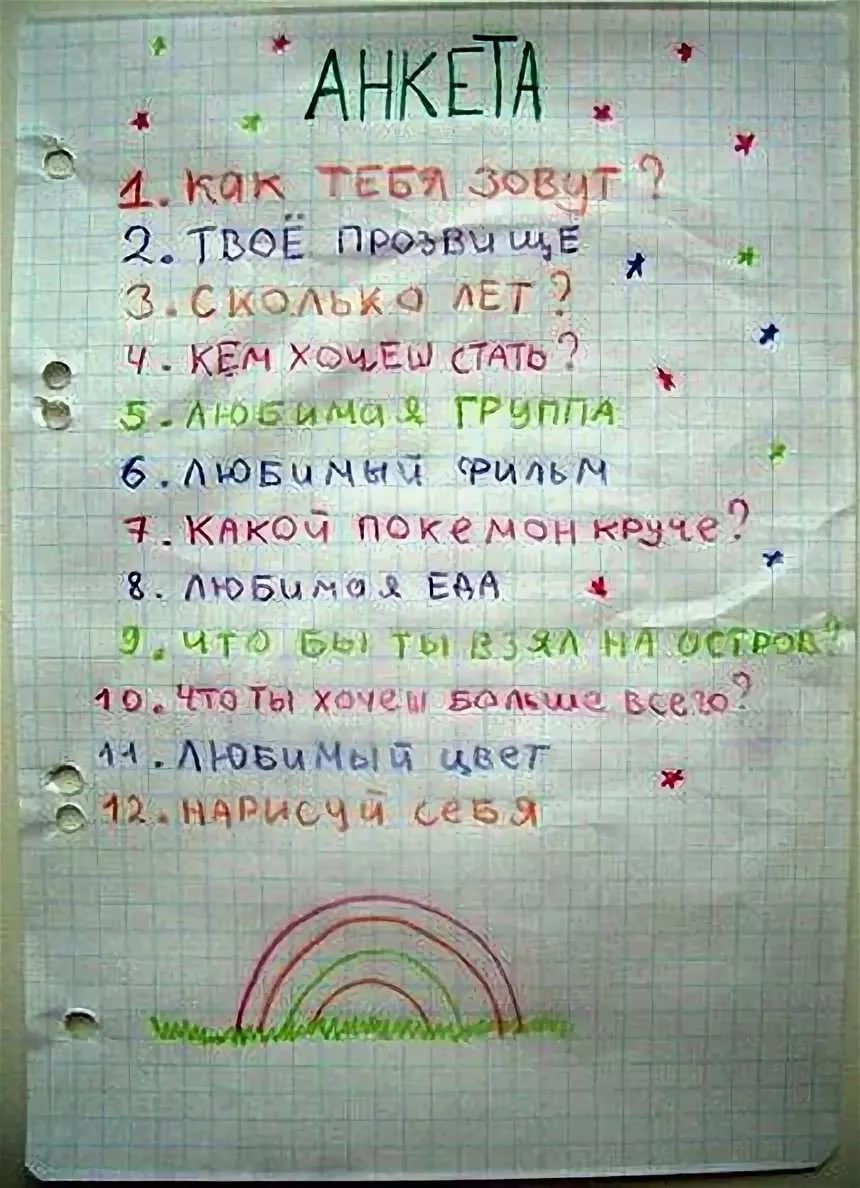 АНКЕТА
1. КАК ТЕБЯ ЗОВУТ?
2. ТВОЁ ПРОЗВИЩЕ
3. СКОЛЬКО ЛЕТ?
4. КЕМ ХОЧЕШ СТАТЬ?
5. ЛЮБИМАЯ ГРУППА
6. ЛЮБИМЫЙ ФИЛЬМ
7. КАКОЙ ПОКЕМОН КРУЧЕ?
8. ЛЮБИМАЯ ЕДА
9. ЧТО БЫ ТЫ ВЗЯЛ НА ОСТРОВ?
10. ЧТО ТЫ ХОЧЕШ БОЛЬШЕ ВСЕГО?
11. ЛЮБИМЫЙ ЦВЕТ
12. НАРИСУЙ СЕБЯ